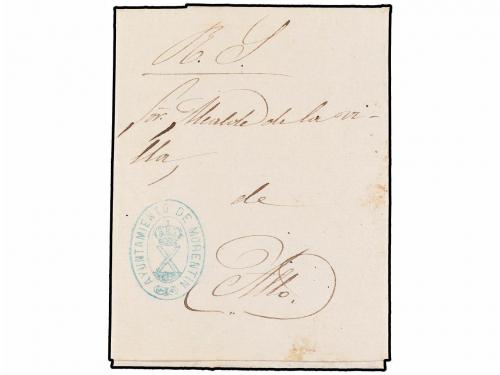 R. S.
Sor. Alcalde de la vi-
lla,
de
Allo.
AYUNTAMIENTO DE MORENTIN